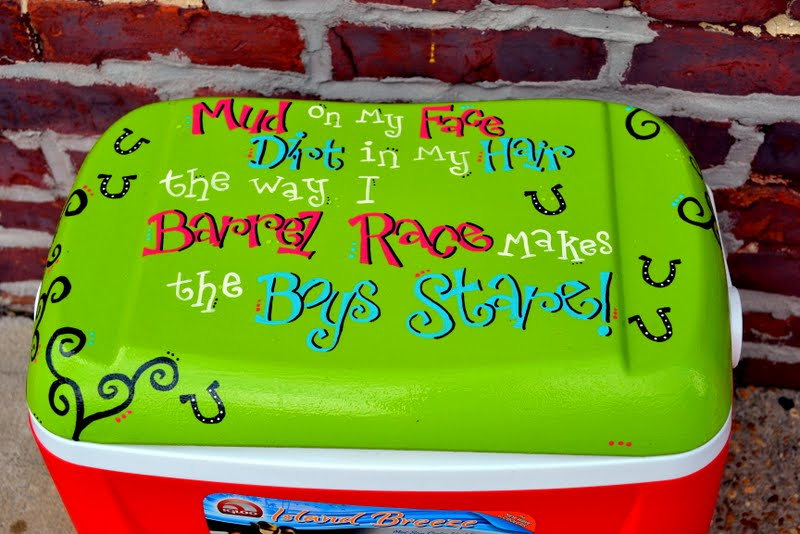 Mud on my Face
Dirt in my Hair
the way I
Barrel Race makes
the Boys Stare!
IGLOO
Island Breeze